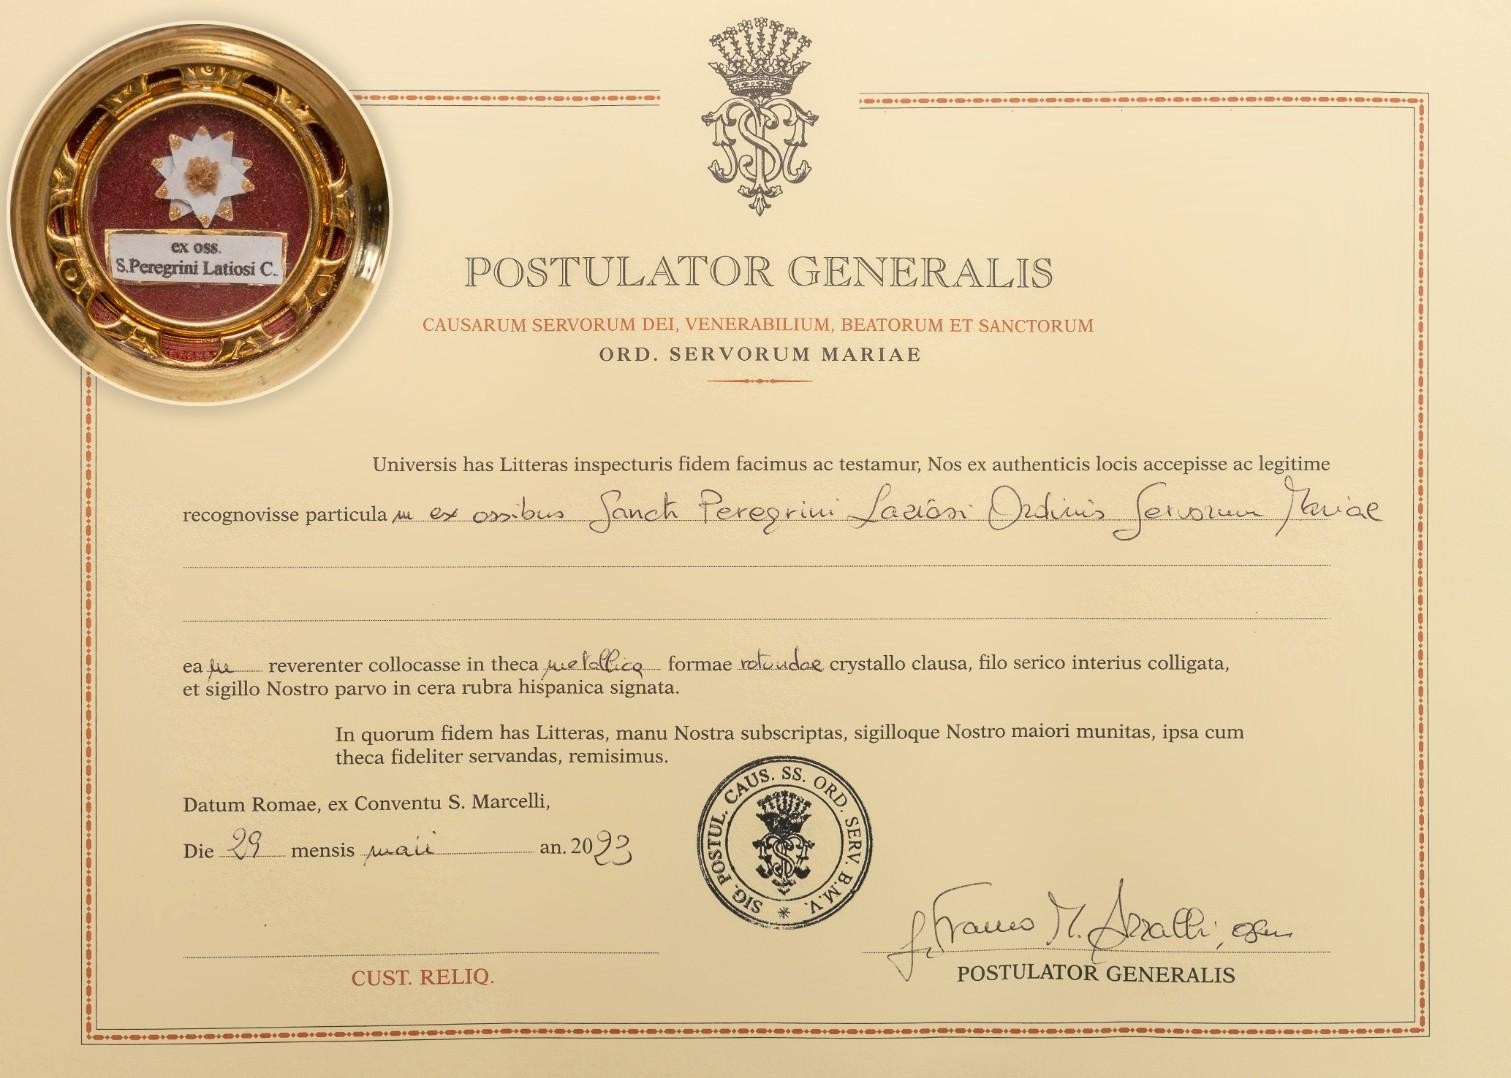 ex oss.
S.Peregrini Latiosi C.
POSTULATOR GENERALIS
CAUSARUM SERVORUM DEI, VENERABILIUM, BEATORUM ET SANCTORUM
ORD. SERVORUM MARIAE
Universis has Litteras inspecturis fidem facimus ac testamur, Nos ex authenticis locis accepisse ac legitime
recognovisse particula m ex ossibus Sancti Peregrini Laziosi Ordinis Servorum Mariae
ea m reverenter collocasse in theca metallica formae rotundae crystallo clausa, filo serico interius colligata,
et sigillo Nostro parvo in cera rubra hispanica signata.
In quorum fidem has Litteras, manu Nostra subscriptas, sigilloque Nostro maiori munitas, ipsa cum
theca fideliter servandas, remisimus.
Datum Romae, ex Conventu S. Marcelli,
Die 29 mensis maii an. 2023
SIG. POSTUL. CAUS. SS. ORD. SERV. B.M.V.
Franco M. Azzalli, osm
CUST. RELIQ.
POSTULATOR GENERALIS